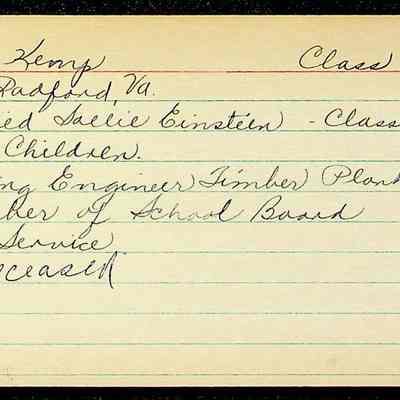 Kemp Class
Radford, Va.
ied Sallie Einstein - Class
Children.
ing Engineer Timber Plan
ber of School Board
Service
eceased